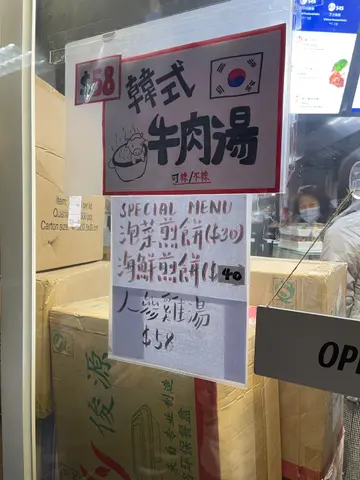 $58
韓式
牛肉湯
可辣/不辣
SPECIAL MENU
泡菜煎餅($30)
海鮮煎餅($40
人參雞湯
$58
俊源
OP